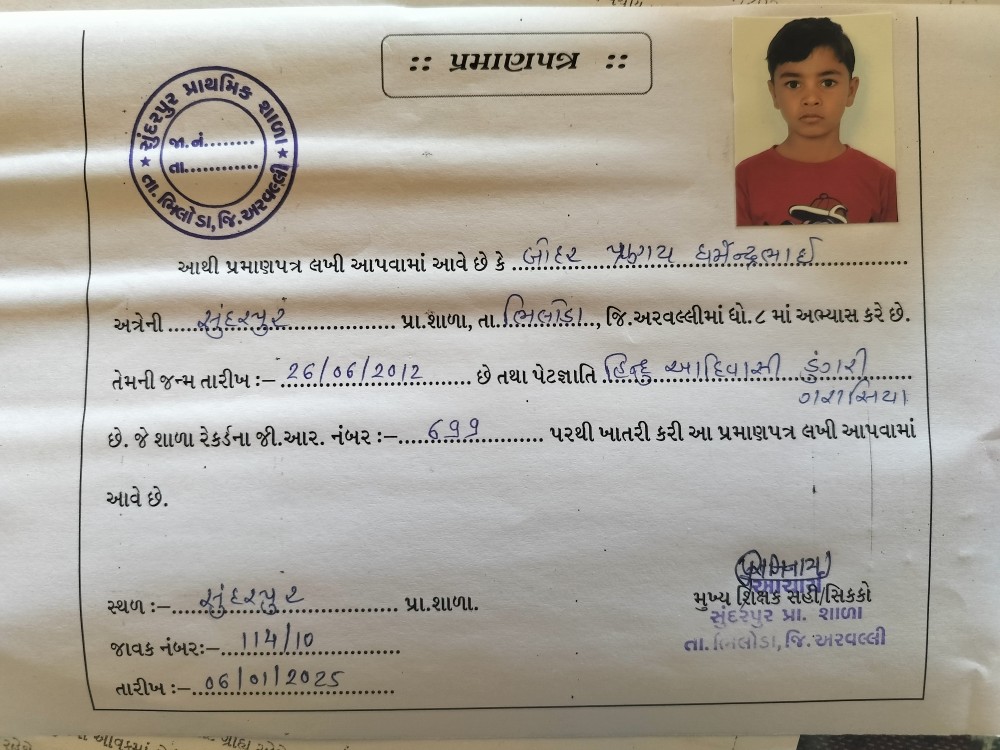 :: પ્રમાણપત્ર ::
સુંદરપુર પ્રાથમિક શાળા
જા.નં.........
તા.............
★ તા.ભિલોડા,જિ.અરવલ્લી ★
આથી પ્રમાણપત્ર લખી આપવામાં આવે છે કે બોદર પ્રણય ધર્મેન્દ્રભાઈ
અત્રેની સુંદરપુર પ્રા.શાળા, તા. ભિલોડા, જિ.અરવલ્લીમાં ધો.૮ માં અભ્યાસ કરે છે.
તેમની જન્મ તારીખ :– 26/06/2012 છે તથા પેટજ્ઞાતિ હિન્દુ આદિવાસી ડુંગરી
ગરાસિયા
છે. જે શાળા રેકર્ડના જી.આર. નંબર :– 699 પરથી ખાતરી કરી આ પ્રમાણપત્ર લખી આપવામાં
આવે છે.
સ્થળ :– સુંદરપુર પ્રા.શાળા.
જાવક નંબર:– 114/10
તારીખ :– 06/01/2025
આચાર્ય
મુખ્ય શિક્ષક સહી/સિક્કો
સુંદરપુર પ્રા. શાળા
તા.ભિલોડા,જિ.અરવલ્લી